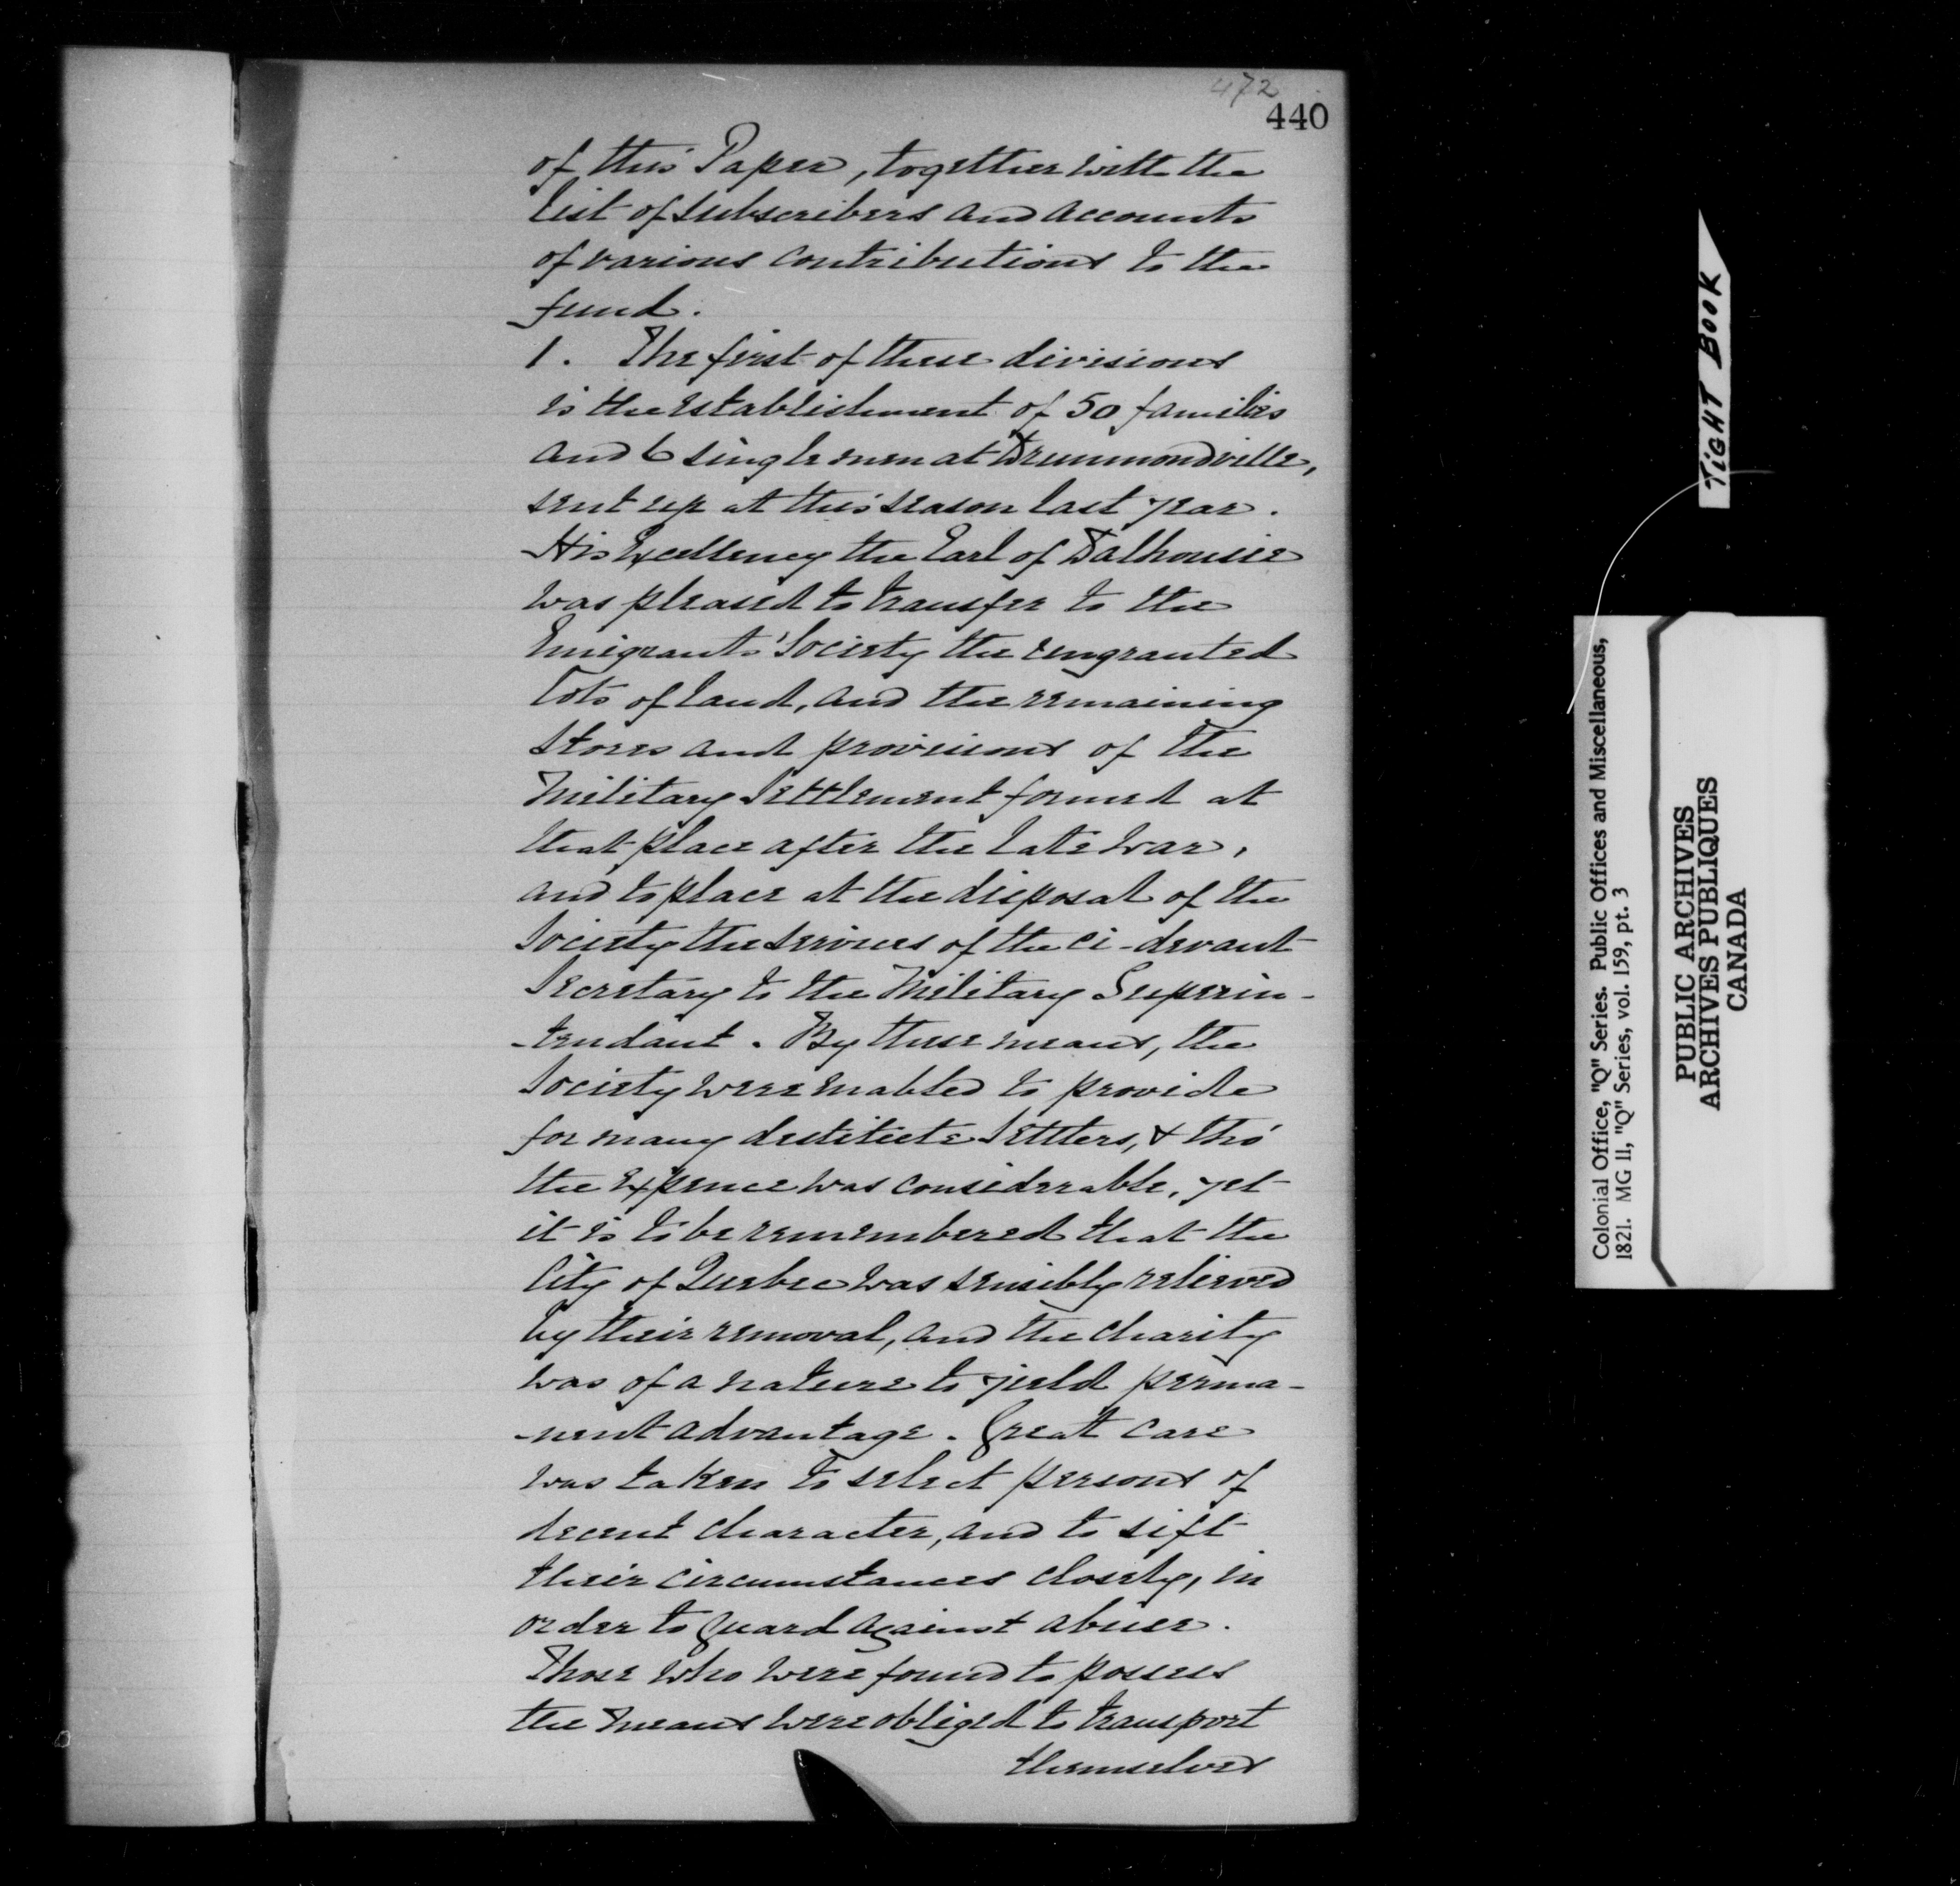 472
440
of this Paper, together with the
list of subscribers and accounts
of various contributions to the
fund.
1. The first of these divisions
is the establishment of 50 families
and 6 single men at Drummondville,
sent up at this season last year.
His Excellency the Earl of Dalhousie
was pleased to transfer to the
Emigrants' Society the ungranted
lots of land, and the remaining
stores and provisions of the
Military Settlement formed at
that place after the late war,
and to place at the disposal of the
Society the services of the ci-devant
Secretary to the Military Superin-
-tendant. By these means, the
Society were enabled to provide
for many destitute Settlers, & tho'
the expence was considerable, yet
it is to be remembered that the
City of Quebec was sensibly relieved
by their removal, and the charity
was of a nature to yield perma-
-nent advantage. Great care
was taken to select persons of
decent character, and to sift
their circumstances closely, in
order to guard against abuse.
Those who were found to possess
the means were obliged to transport
themselves
TIGHT BOOK
Colonial Office, "Q" Series. Public Offices and Miscellaneous,
1821. MG 11, "Q" Series, vol. 159, pt. 3
PUBLIC ARCHIVES
ARCHIVES PUBLIQUES
CANADA